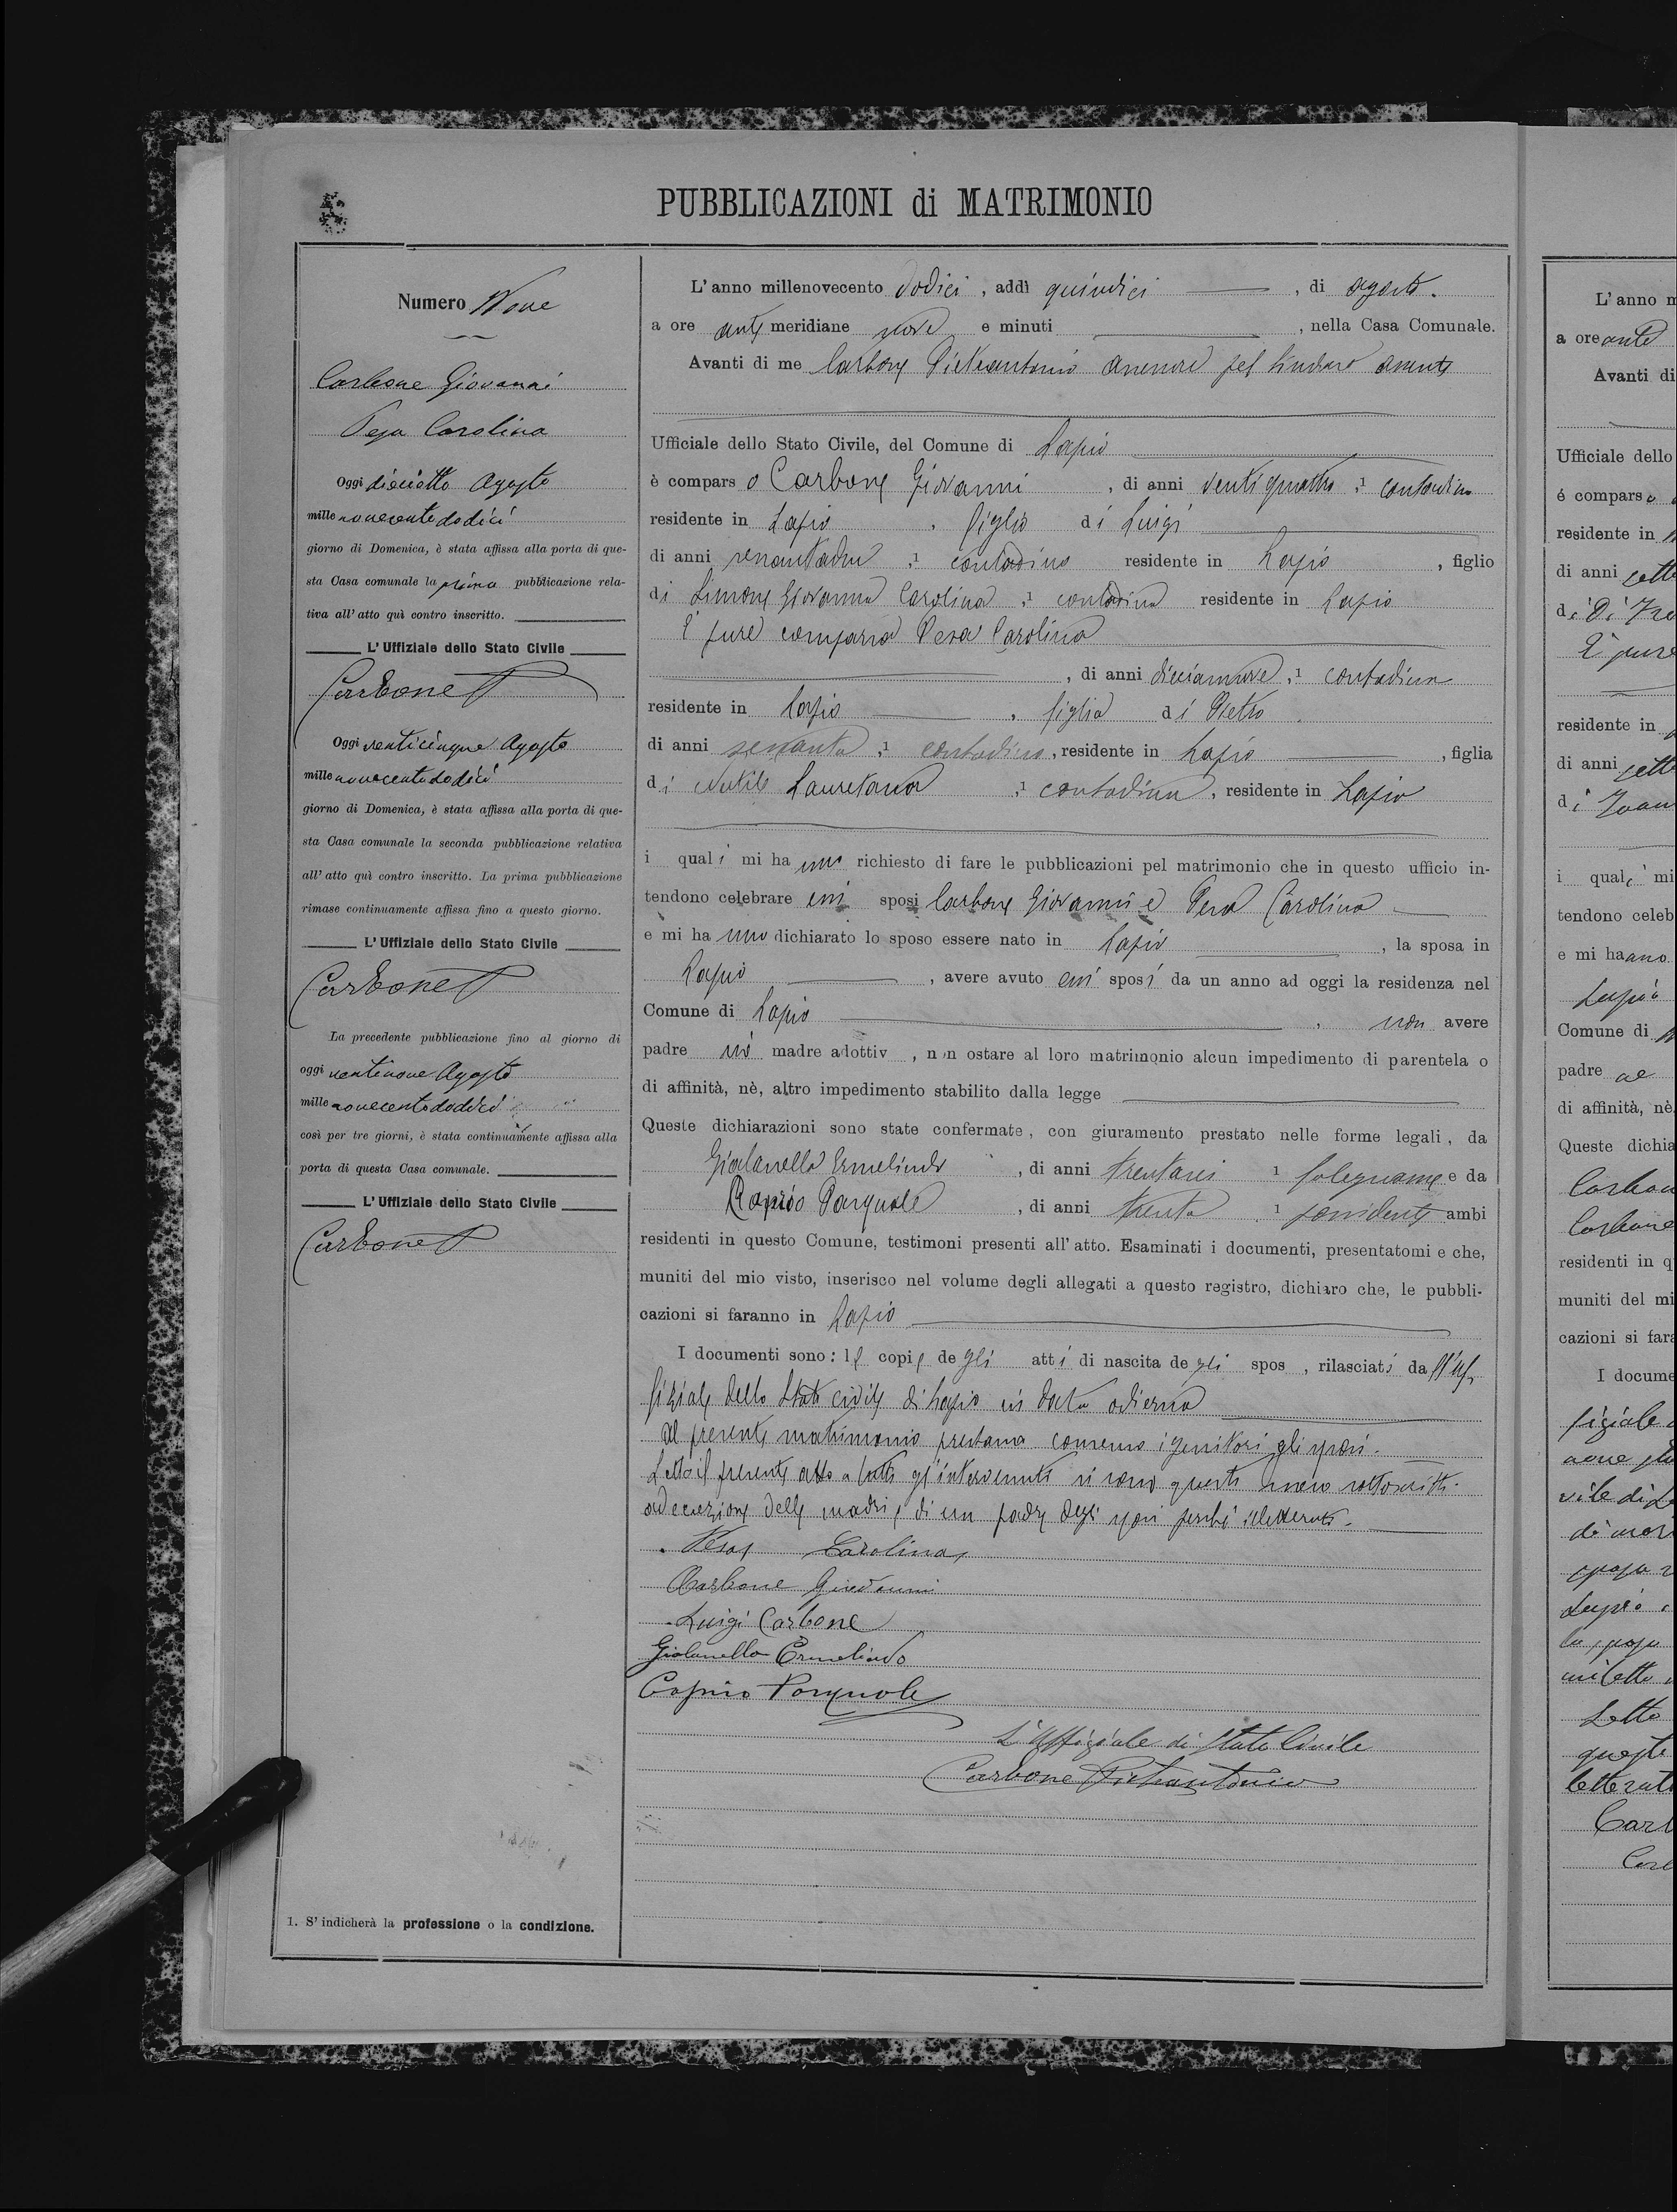 PUBBLICAZIONI di MATRIMONIO
Numero Nove
Carbone Giovanni
Pesa Carolina
Oggi dieciotto Agosto
mille novecentododici
giorno di Domenica, è stata affissa alla porta di que-
sta Casa comunale la prima pubblicazione rela-
tiva all' atto quì contro inscritto.
L' Uffiziale dello Stato Civile
Carbone P
Oggi venticinque Agosto
mille novecentododici
giorno di Domenica, è stata affissa alla porta di que-
sta Casa comunale la seconda pubblicazione relativa
all' atto quì contro inscritto. La prima pubblicazione
rimase continuamente affissa fino a questo giorno.
L' Uffiziale dello Stato Civile
Carbone P
La precedente pubblicazione fino al giorno di
oggi ventinove Agosto
mille novecentododici
così per tre giorni, è stata continuamente affissa alla
porta di questa Casa comunale.
L' Uffiziale dello Stato Civile
Carbone P
1. S' indicherà la professione o la condizione.
L' anno millenovecento dodici, addì quindici, di agosto.
a ore ante meridiane nove e minuti, nella Casa Comunale.
Avanti di me Carbone Pietrantonio assessore pel Sindaco assente
Ufficiale dello Stato Civile, del Comune di Lapio
è compars o Carbone Giovanni, di anni ventiquattro, 1 contadino
residente in Lapio, figlio di Luigi
di anni , 1 contadino residente in Lapio, figlio
di Simone Giovanna Carolina, 1 contadina residente in Lapio
È pure comparsa Pesa Carolina
, di anni diciannove, 1 contadina
residente in Lapio, figlia di Pietro
di anni sessanta, 1 contadino, residente in Lapio, figlia
di Nutile Lauretana, 1 contadina, residente in Lapio
i quali mi hanno richiesto di fare le pubblicazioni pel matrimonio che in questo ufficio in-
tendono celebrare essi sposi Carbone Giovanni e Pesa Carolina
e mi hanno dichiarato lo sposo essere nato in Lapio, la sposa in
Lapio, avere avuto essi sposi da un anno ad oggi la residenza nel
Comune di Lapio, non avere
padre nè madre adottiv , non ostare al loro matrimonio alcun impedimento di parentela o
di affinità, nè, altro impedimento stabilito dalla legge
Queste dichiarazioni sono state confermate, con giuramento prestato nelle forme legali, da
Giolanella Ermelindo, di anni trentasei 1 falegname e da
Caprio Pasquale, di anni trenta, 1 possidente ambi
residenti in questo Comune, testimoni presenti all' atto. Esaminati i documenti, presentatomi e che,
muniti del mio visto, inserisco nel volume degli allegati a questo registro, dichiaro che, le pubbli-
cazioni si faranno in Lapio
I documenti sono: le copie degli atti di nascita degli spos , rilasciati dall'uf-
fiziale dello Stato civile di Lapio in data odierna
Al presente matrimonio prestano consenso i genitori gli sposi.
Letto il presente atto a tutti gl'intervenuti si sono questi meco sottoscritti
ad eccezione delle madri e di un padre degli sposi perchè illetterati.
Pesa Carolina
Carbone Giovanni
Luigi Carbone
Giolanella Ermelindo
Caprio Pasquale
L'Uffiziale di Stato Civile
Carbone Pietrantonio
L' anno m
a ore ante
Avanti di
Ufficiale dello
è comparso
residente in
di anni sette
di Di
È pure
residente in
di anni sette
di
i quali mi
tendono celeb
e mi hanno
Lapio
Comune di
padre ne
di affinità, nè
Queste dichia
Carbon
Carbone
residenti in q
muniti del mi
cazioni si fara
I docume
fiziale
vile di La
di mor
sposa
Lapio
la sposa
Letto
queste
letterati
Carb
Carb